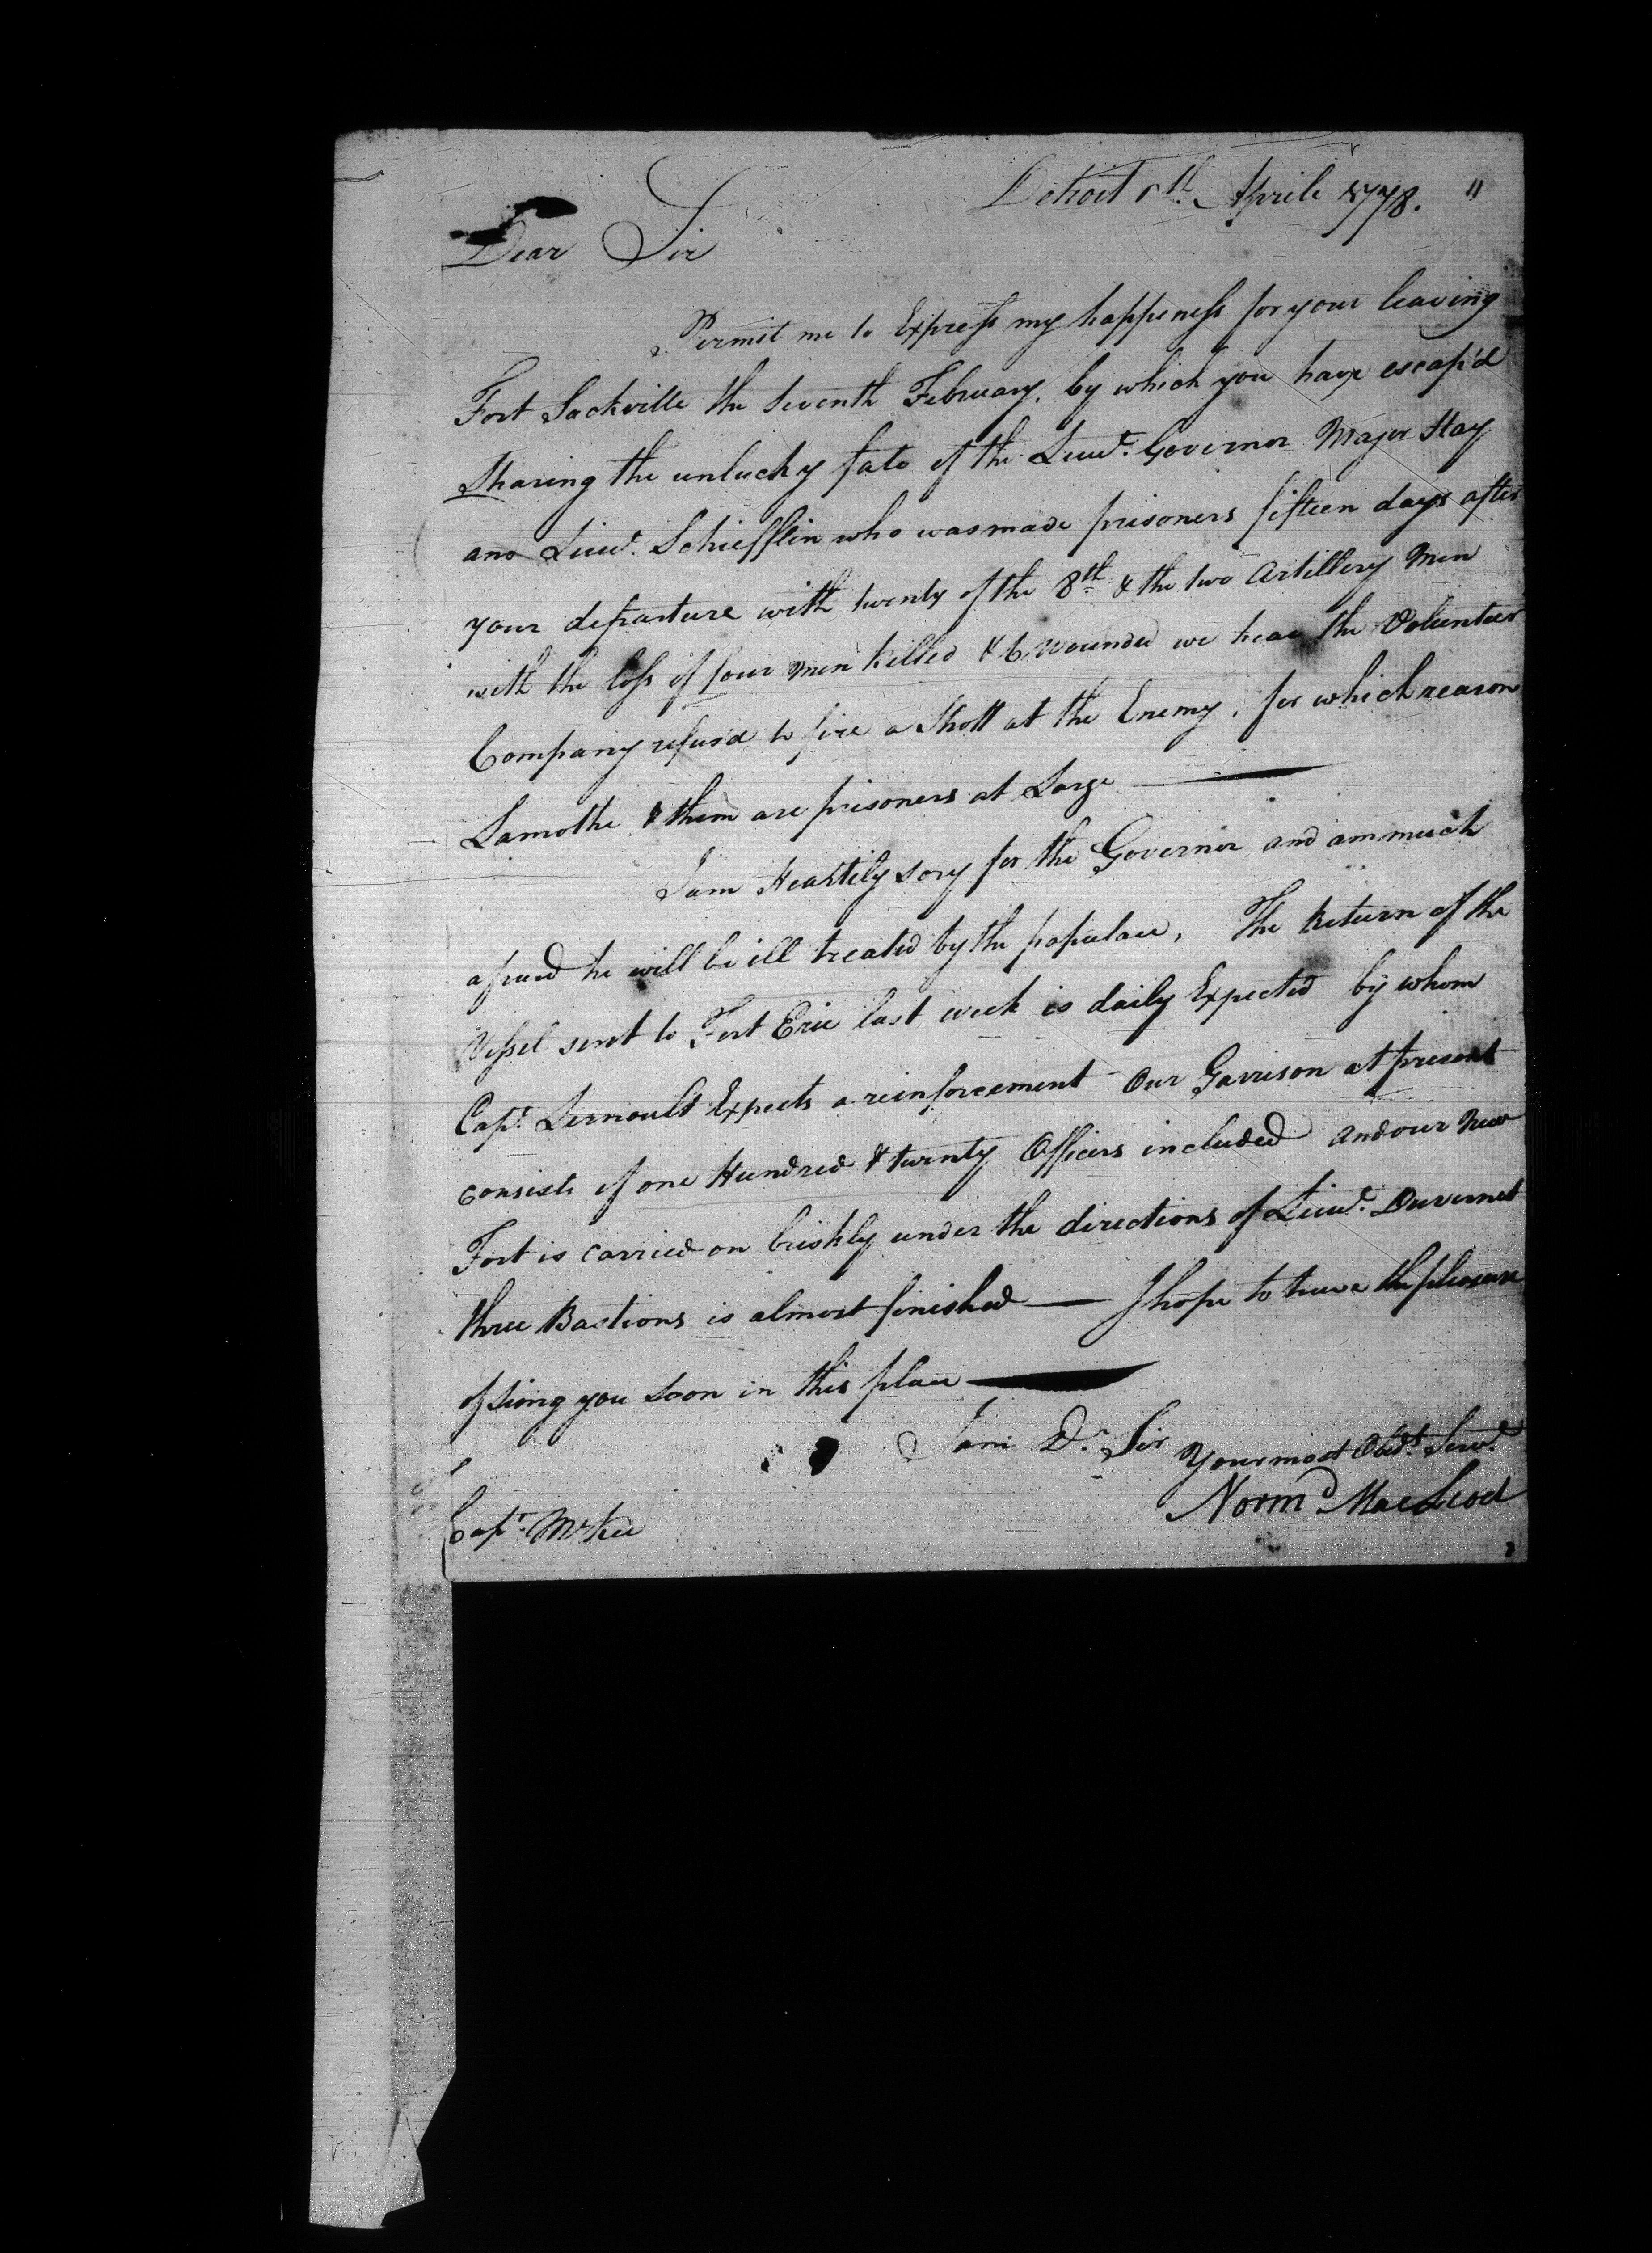 Detroit 1th. Aprile 1778. "
Dear Sir
Permit me to Express my happiness for your leaving
Fort Sackville the Seventh February, by which you have escap'd
Sharing the unlucky fate of the Lieut. Governor Major Hay
and Lieut. Schiefflin who was made prisoners fifteen days after
your departure with twenty of the 8th. & the two Artillery Men
with the loss of four men killed & 6 Wounded we hear the Volunteer
Company refused to fire a Shott at the Enemy, for which reason
Lamothe & them are prisoners at Large
I am Heartily sory for the Governor and am much
afraid he will be ill treated by the populace, The Return of the
Vessel sent to Fort Erie last week is daily Expected by whom
Capt. Lernoult Expects a reinforcement Our Garrison at present
consists of one Hundred & twenty Officers included and our New
Fort is carried on briskly under the directions of Lieut. Duvernet
three Bastions is almost finished — I hope to have the pleasure
of seing you soon in this place
I am Dr. Sir Your most Obdt. Servt.
Normd MacLeod
Capt. McKee